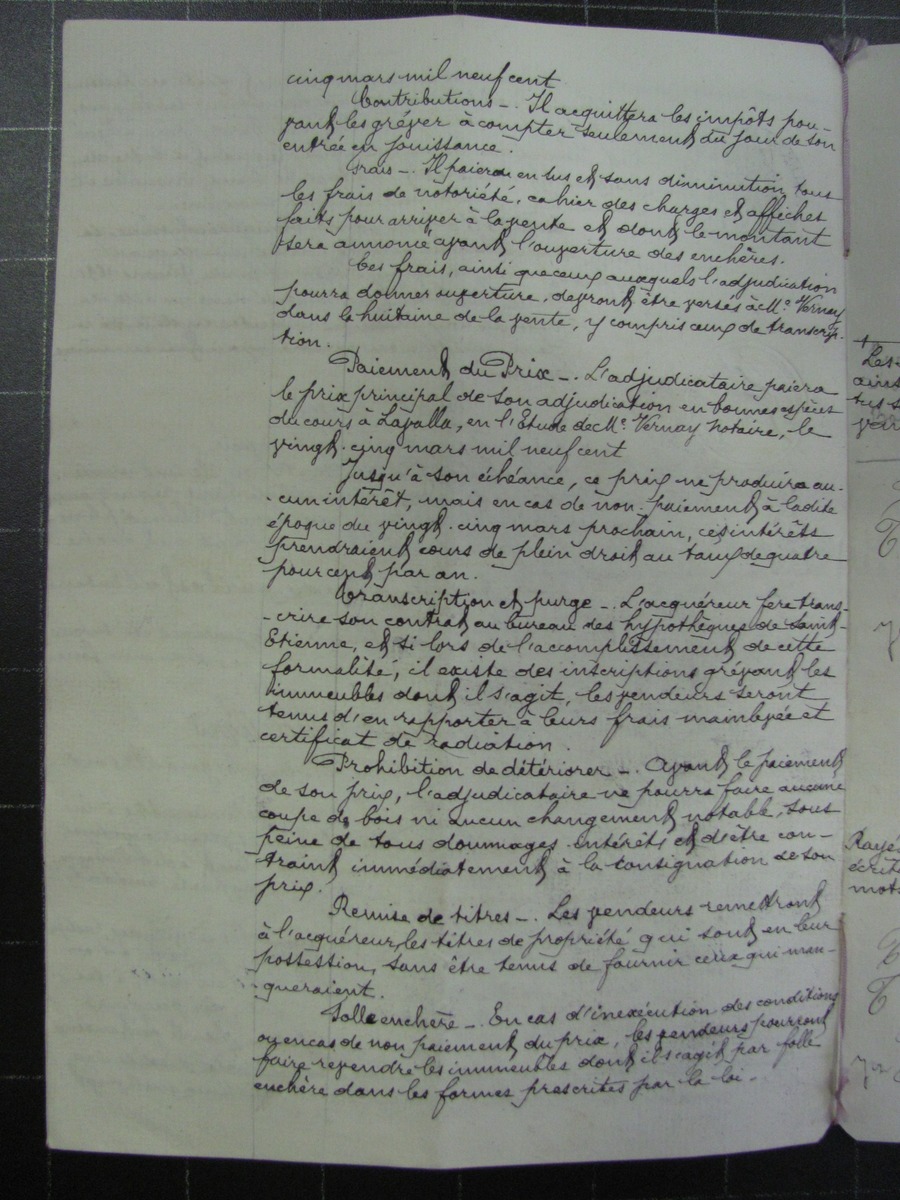 cinq mars mil neuf cent
Contributions -. Il acquittera les impôts pou-
vant les gréver à compter seulement du jour de son
entrée en jouissance.
Frais -. Il paiera en sus et sans diminution, tous
les frais de notoriété, cahier des charges et affiches
faits pour arriver à la vente et dont le montant
sera annoncé avant l'ouverture des enchères.
Ces frais, ainsi que ceux auxquels l'adjudication
pourra donner ouverture, devront être versés à Me. Vernay
dans la huitaine de la vente, y compris ceux de transcrip-
tion.
Paiement du Prix -. L'adjudicataire paiera
le prix principal de son adjudication en bonnes espèces
du cours à Lavalla, en l'Etude de Me. Vernay notaire, le
vingt-cinq mars mil neuf cent
Jusqu'à son échéance, ce prix ne produira au-
-cun intérêt, mais en cas de non-paiement à ladite
époque du vingt-cinq mars prochain, ces intérêts
prendraient cours de plein droit au taux de quatre
pour cent par an.
Transcription et purge -. L'acquéreur fera trans-
-crire son contrat au bureau des hypothèques de Saint-
Etienne, et si lors de l'accomplissement de cette
formalité, il existe des inscriptions grévant les
immeubles dont il s'agit, les vendeurs seront
tenus d'en rapporter à leurs frais mainlevée et
certificat de radiation.
Prohibition de détériorer -. Avant le paiement
de son prix, l'adjudicataire ne pourra faire aucune
coupe de bois ni aucun changement notable, sous
peine de tous dommages-intérêts et d'être con-
-traint immédiatement à la consignation de son
prix.
Remise de titres -. Les vendeurs remettront
à l'acquéreur, les titres de propriété qui sont en leur
possession, sans être tenus de fournir ceux qui man-
-queraient.
Folle enchère -. En cas d'inexécution des conditions
ou en cas de non paiement du prix, les vendeurs pourront
faire revendre les immeubles dont il s'agit par folle
enchère dans les formes prescrites par la loi -